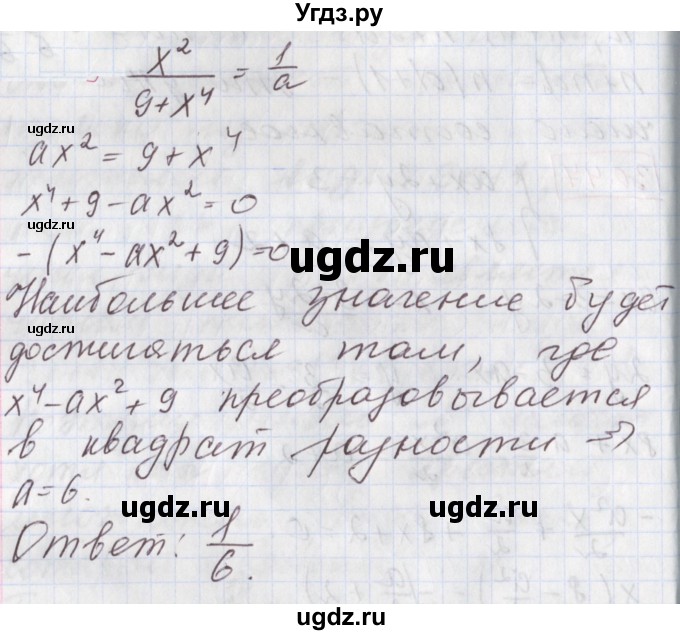 Угдз.ру
x²/(9+x⁴) = 1/a
ugdz.ru
ugdz.ru
ax² = 9 + x⁴
x⁴ + 9 - ax² = 0
ugdz.ru
-(x⁴ - ax² + 9) = 0
ugdz.ru
Наибольшее значение будет
ugdz.ru
достигаться там, где
x⁴ - ax² + 9 преобразовывается
ugdz.ru
в квадрат разности ⇒
a = 6.
ugdz.ru
ugdz.ru
Ответ: 1/6.
ugdz.ru
ugdz.ru